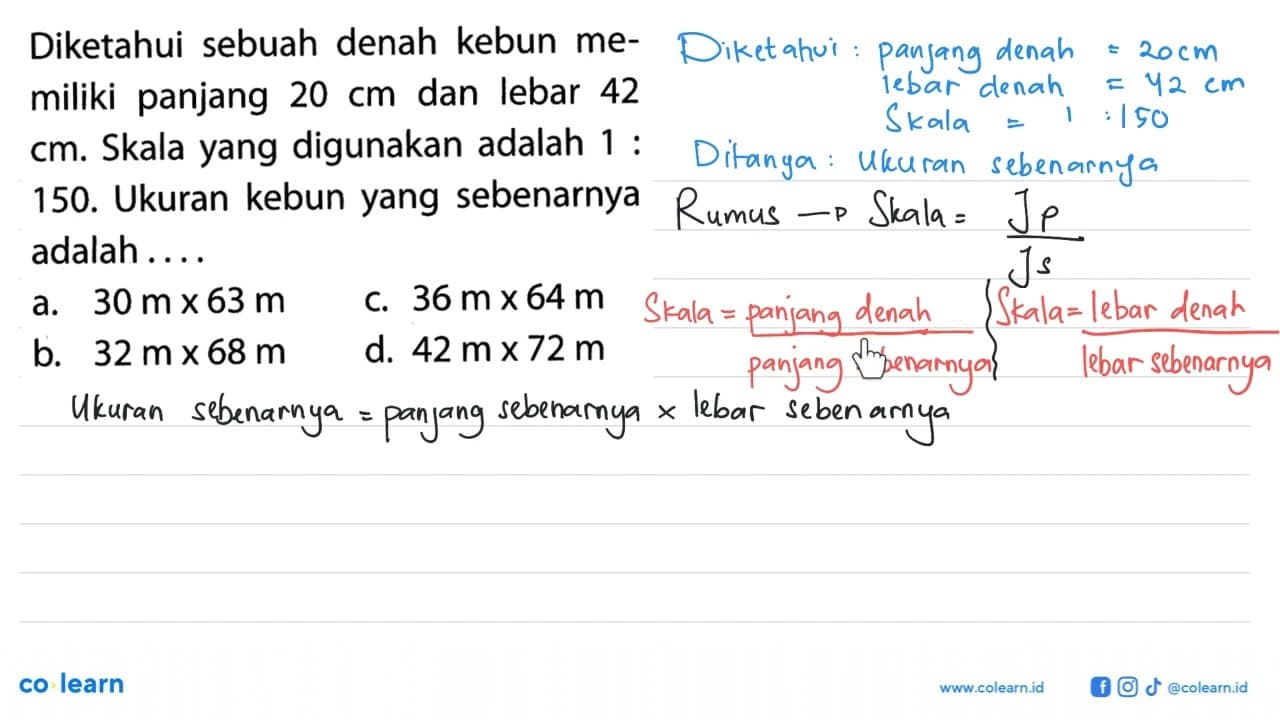 Diketahui sebuah denah kebun me-
miliki panjang 20 cm dan lebar 42
cm. Skala yang digunakan adalah 1 :
150. Ukuran kebun yang sebenarnya
adalah . . . .
a. 30 m x 63 m c. 36 m x 64 m
b. 32 m x 68 m d. 42 m x 72 m
Diketahui : panjang denah = 20 cm
lebar denah = 42 cm
Skala = 1 : 150
Ditanya : Ukuran sebenarnya
Rumus → Skala = Jp
Js
Skala = panjang denah
panjang benarnya
Skala = lebar denah
lebar sebenarnya
Ukuran sebenarnya = panjang sebenarnya x lebar sebenarnya
co learn
www.colearn.id
@colearn.id